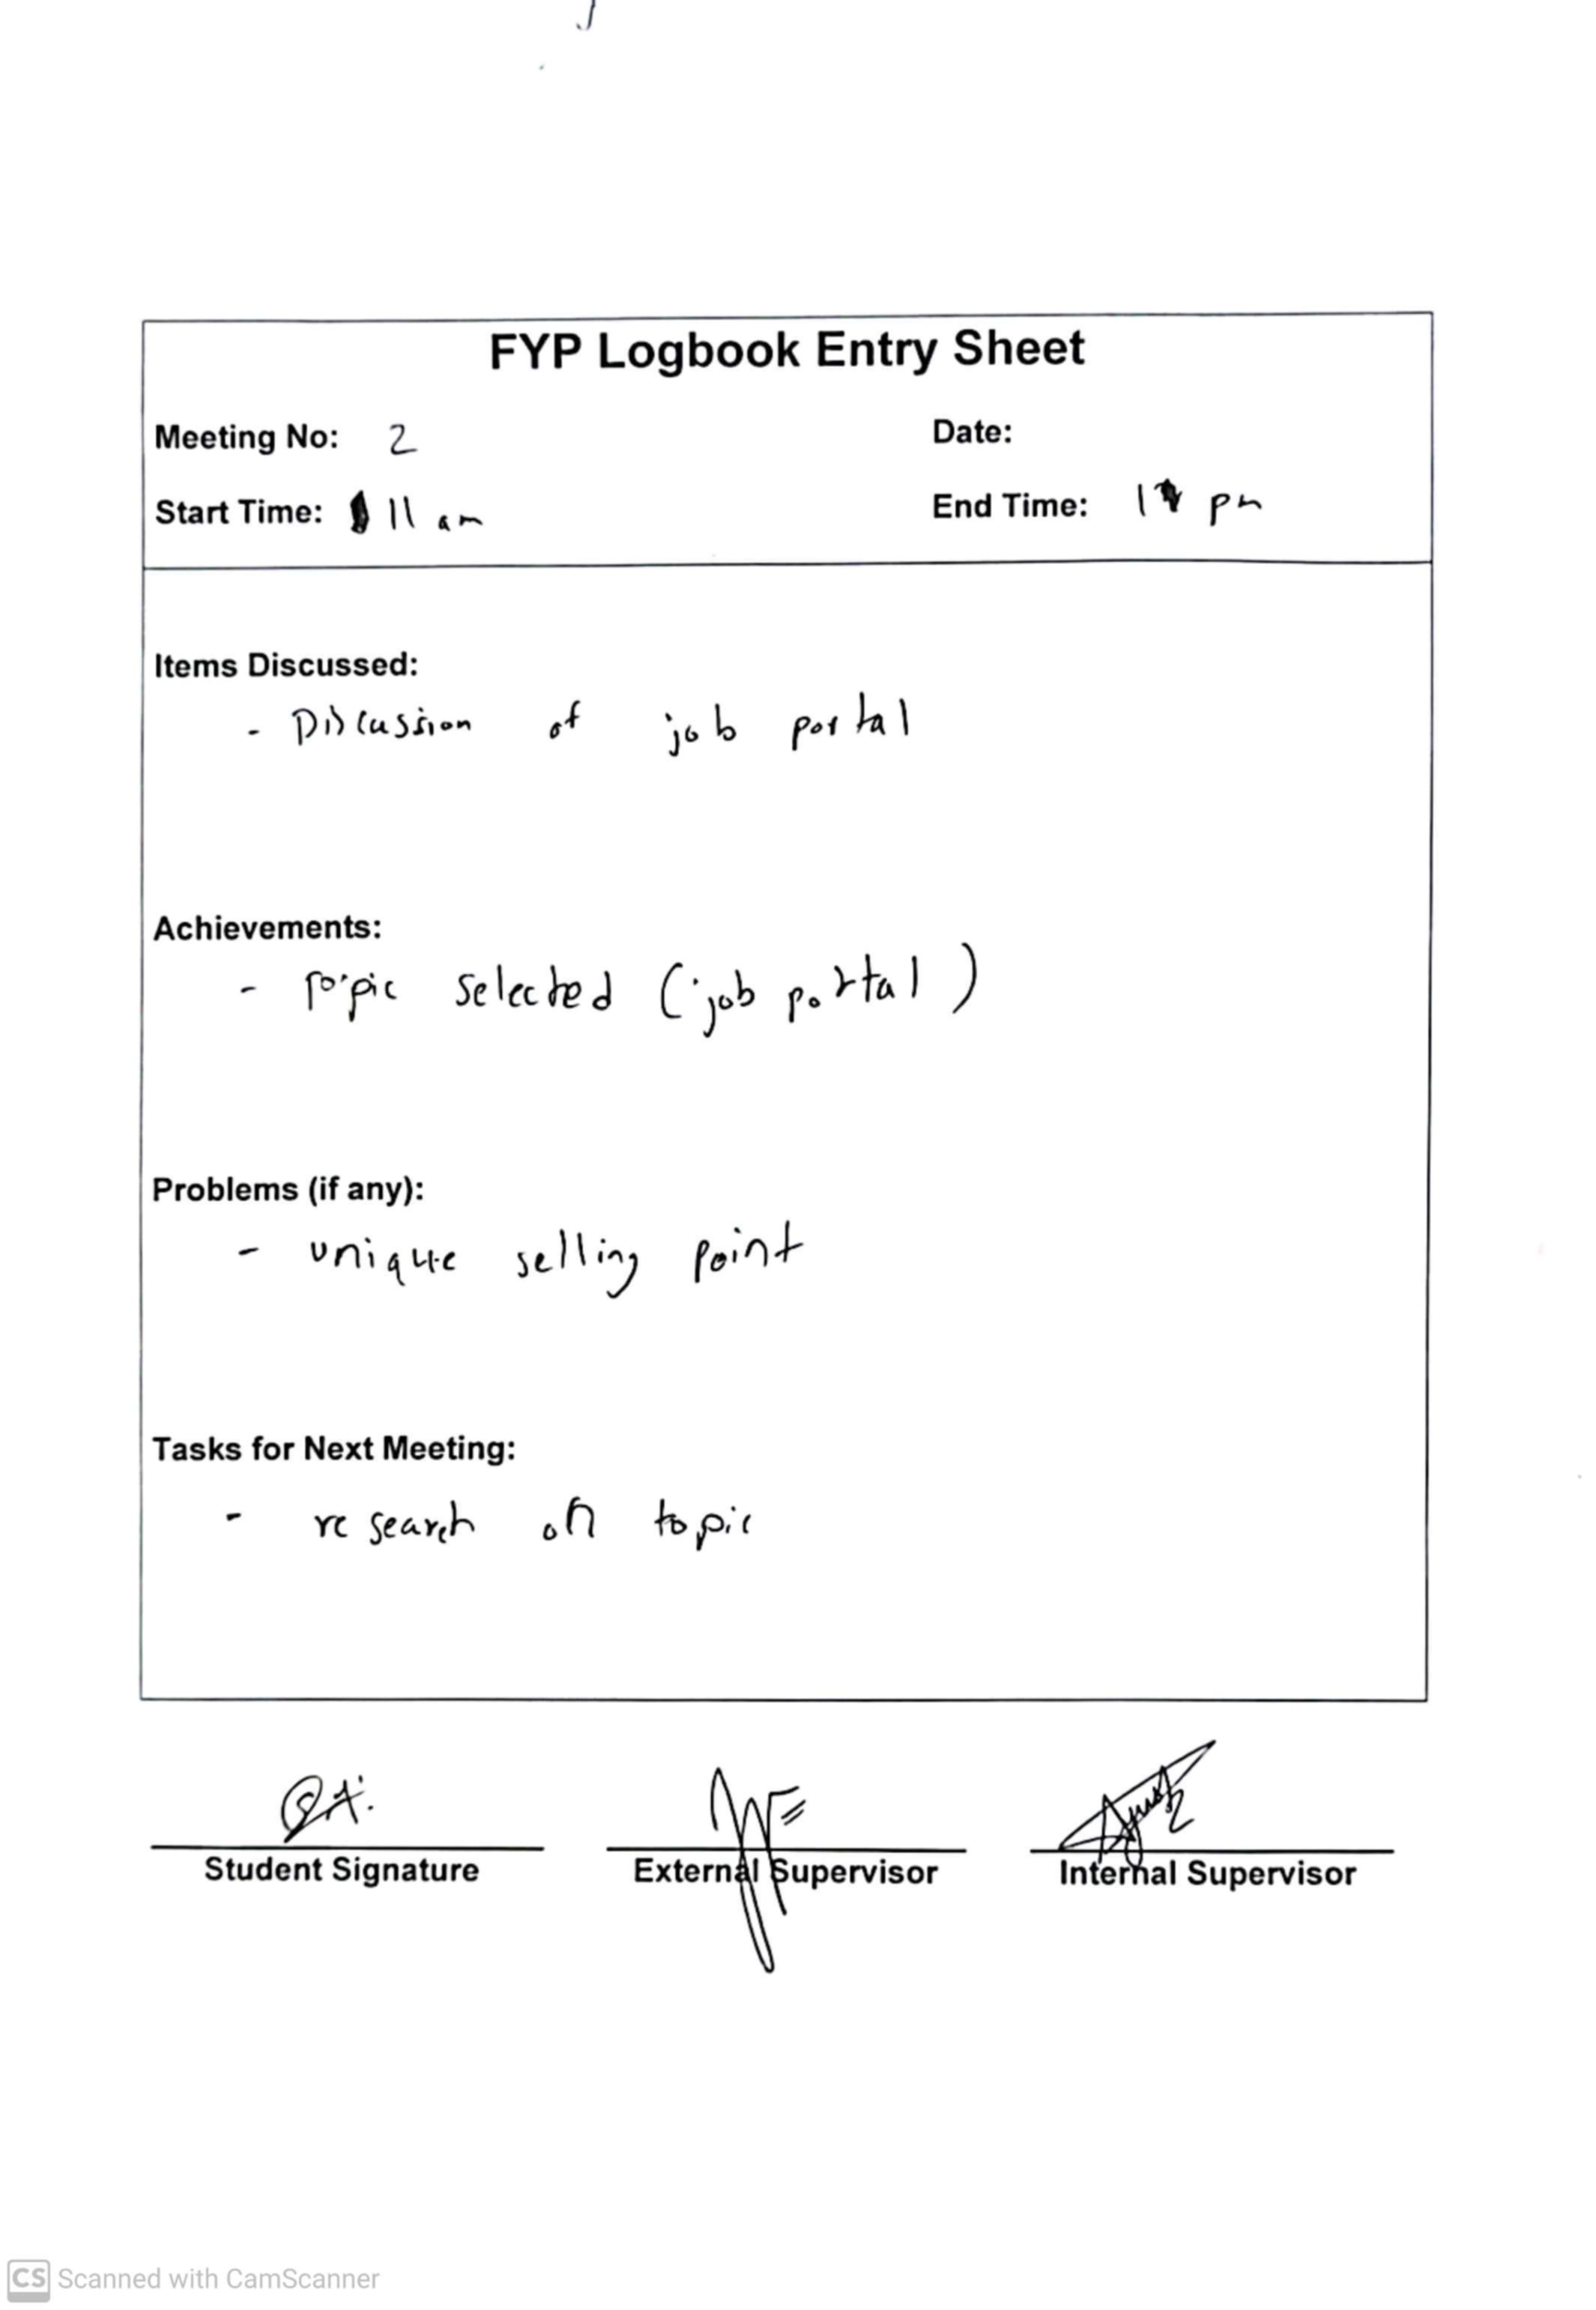 FYP Logbook Entry Sheet
Meeting No: 2 Date:
Start Time: 11 am End Time: 1 pm
Items Discussed:
- Discussion of job portal
Achievements:
- Topic selected (job portal)
Problems (if any):
- unique selling point
Tasks for Next Meeting:
- research on topic
Student Signature External Supervisor Internal Supervisor
CS Scanned with CamScanner